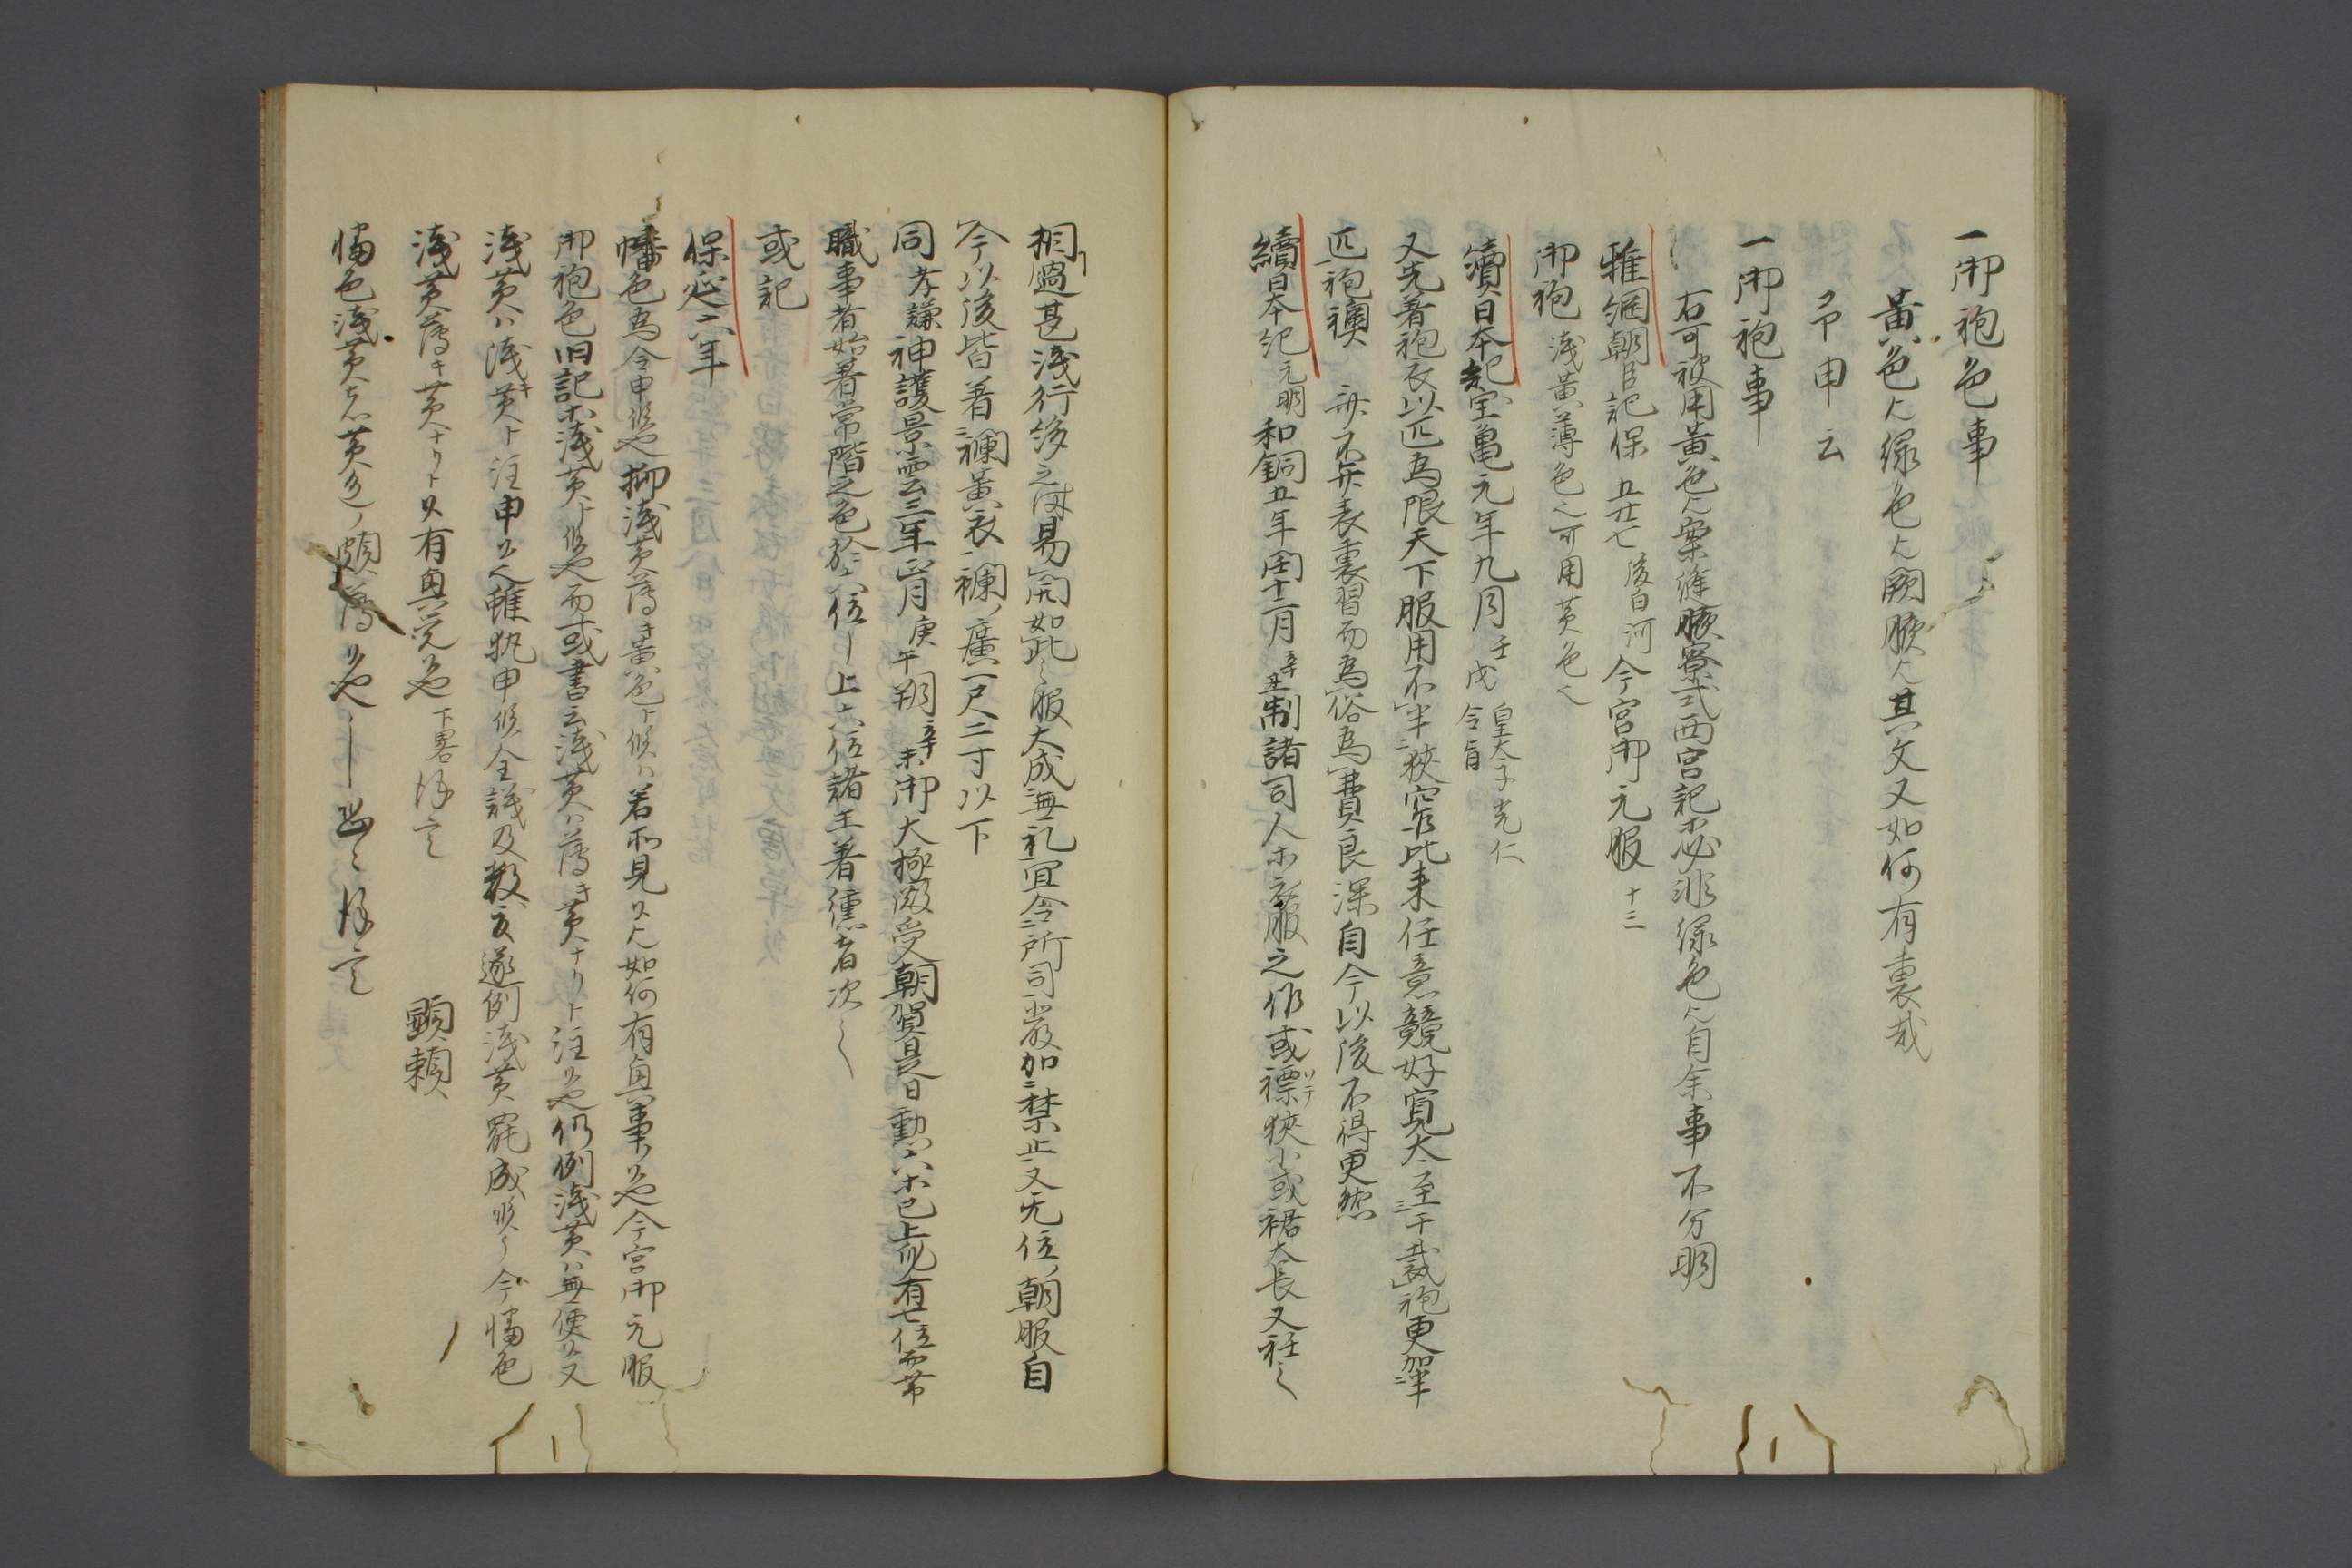 一御袍色事
黄色欤緑色欤闕腋欤其文又如何有裏哉
予申云
一御袍事
右可被用黄色欤案縫腋寮式西宮記必非緑色欤自余事不分明
雅綱朝臣記保五廿七後白河今宮御元服十三
御袍浅黄薄色之可用黄色之
續日本紀宝亀元年九月壬戌皇太子光仁令旨
又先着袍衣以匹為限天下服用不半狭窄比来任意競好寛大至于裁袍更加半
匹袍襖亦不弁表裏習而為俗為費良深自今以後不得更然
續日本紀元明和銅五年閏十二月辛丑制諸司人等衣服之作或褾狭小或裾大長又衽之
相過甚浅行趍之時易開如此之服大成無礼宜令所司厳加禁止又无位朝服自
今以後皆着襴黄衣襴広一尺二寸以下
同孝謙神護景雲三年正月庚午朔辛未御大極殿受朝賀是日勲六等已上身有七位而帯
職事者始着当階之色於六位上六位諸王着纁者次之
或記
保延六年
幡色為令申候也抑浅黄薄キ黄色ト候ハ若所見候欤如何有興事候也今宮御元服
御袍色旧記等浅黄ト候也而或書云浅黄ハ薄キ黄ナリト注候也仍例浅黄ハ無便候又
浅黄ハ浅キ黄ト注申候之雖執申候全議及数度遂例浅黄罷成候了今幡色
浅黄薄キ黄ナリト候有興覚候也下略謹言
顕頼
幡色浅黄者黄色頗薄候也 恐々謹言